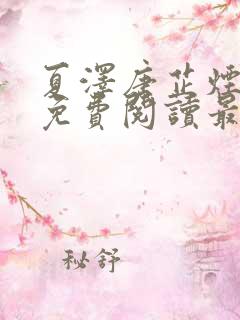 夏澤唐芷煙
免費閱讀最
秘舒